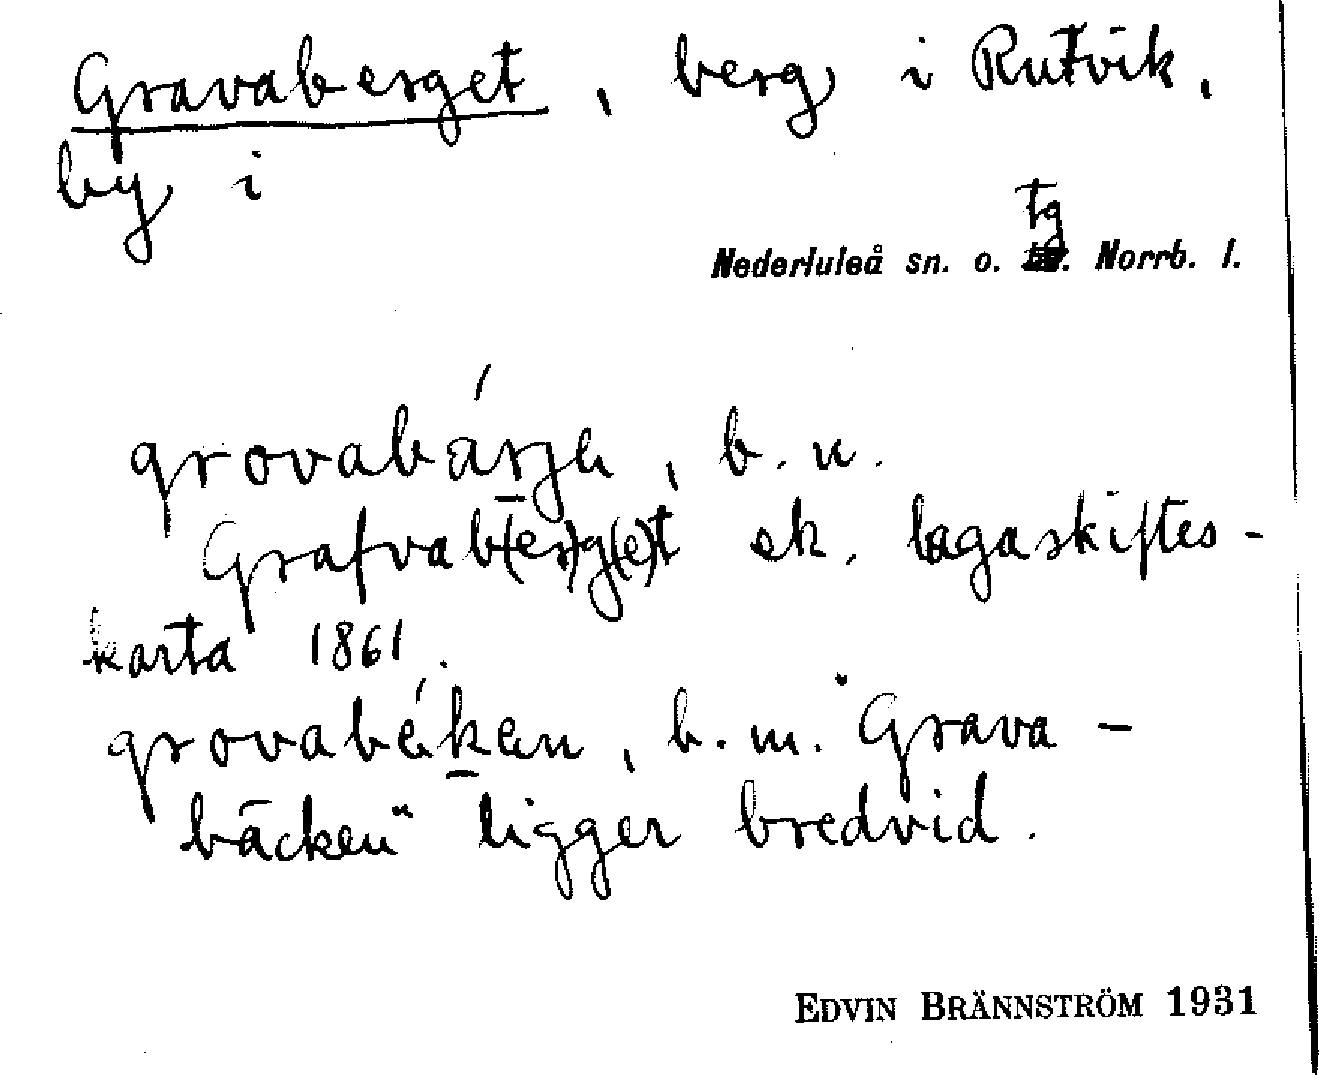 Gravaberget, berg i Rutvik,
by i
Nederluleå sn. o. tg Norrb. l.
grovabárje, b. n.
Grafvab(er)g(e)t ek. lagaskiftes-
karta 1861.
grovabéken, b. m. "Grava-
bäcken" ligger bredvid.
EDVIN BRÄNNSTRÖM 1931